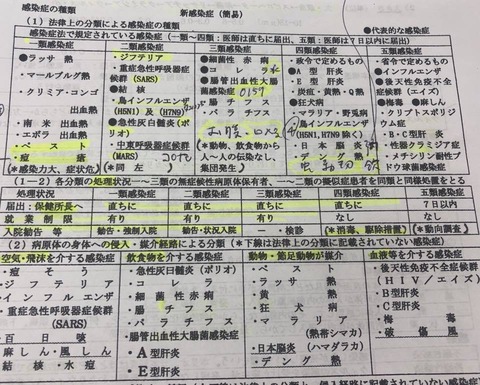 感染症の種類
新感染症(簡易)
(1)法律上の分類による感染症の種類
●代表的な感染症
感染症法で規定されている感染症(一類～四類:医師は直ちに届出、五類:医師は7日以内に届出)
一類感染症
●ラッサ熱
・マールブルグ熱
・クリミア・コンゴ
出血熱
・南米出血熱
・エボラ出血熱
・ペスト
・痘瘡
(*感染力大、症状危)
二類感染症
・ジフテリア
・重症急性呼吸器症
候群(SARS)
●結核
・鳥インフルエンザ
(H5N1)及(H7N9)
●急性灰白髄炎(ポ
リオ)
・中東呼吸器症候群
(MARS)
(*同左)
三類感染症
●細菌性赤痢
●コレラ
●腸管出血性大腸
菌感染症 0157
・腸チフス
・パラチフス
(*動物、飲食物から
人～人の伝染なし、
集団発生)
四類感染症
・政令で定めるもの
●A型肝炎
・E型肝炎
・炭疽・黄熱・Q熱
●狂犬病
・マラリア・野兎病
・鳥インフルエンザ
(H5N1,H7N9除く)
・日本脳炎
・デング熱
五類感染症
・省令で定めるもの
●インフルエンザ
●後天性免疫不全症
候群(エイズ)
●梅毒●麻しん
・クリプトスポリジ
ウム症
・B・C型肝炎
・性器クラミジア症
・メチシリン耐性ブ
ドウ球菌感染症
(1-2)各分類の処理状況――三類の無症候性病原体保有者、――二類の疑似症患者を同類と同様処置をとる
処理状況 一類感染症 二類感染症 三類感染症 四類感染症 五類感染症
届出:保健所長へ 直ちに 直ちに 直ちに 直ちに 7日以内
就業制限 有り 有り 有り なし なし
入院勧告等 勧告・強制入院 勧告・状況入院 ―・検診 (*消毒、駆除措置) (*動向調査)
(2)病原体の身体への侵入・媒介経路による分類(*下線は法律上の分類に記載されていない感染症)
空気・飛沫を介する感染症
・痘そう
・ジフテリア
・インフルエンザ
・重症急性呼吸器症候群
(SARS)
・百日咳
・麻しん・風しん
・結核・水痘
飲食物を介する感染症
・急性灰白髄炎(ポリオ)
・コレラ
・細菌性赤痢
・腸チフス
・パラチフス
・腸管出血性大腸菌感染症
・A型肝炎
・E型肝炎
動物・節足動物が媒介
・ペスト
・ラッサ熱
・黄熱
・狂犬病
・マラリア
(熱帯シマカ)
・日本脳炎(ハマダラカ)
・デング熱
血液等を介する感染症
・後天性免疫不全症候群
(HIV/エイズ)
・B型肝炎
・C型肝炎
・梅毒
・破傷風